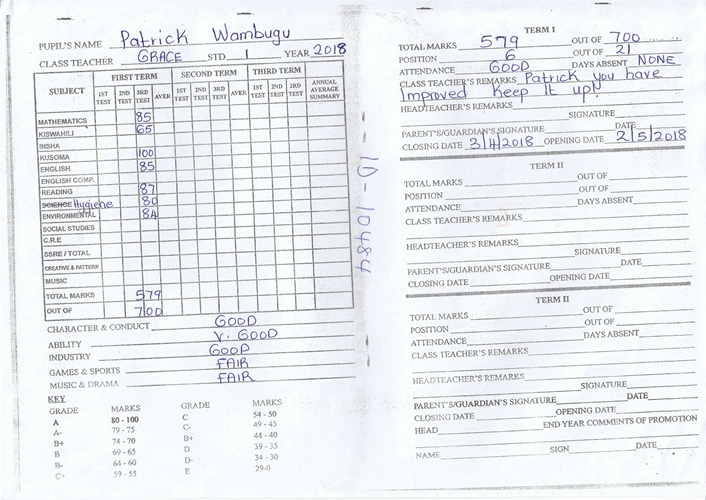 PUPIL'S NAME Patrick Wambugu
CLASS TEACHER GRACE STD 1 YEAR 2018
SUBJECT FIRST TERM SECOND TERM THIRD TERM ANNUAL AVERAGE SUMMARY
1ST TEST 2ND TEST 3RD TEST AVER 1ST TEST 2ND TEST 3RD TEST AVER 1ST TEST 2ND TEST 3RD TEST
MATHEMATICS 85
KISWAHILI 65
INSHA
KUSOMA 100
ENGLISH 85
ENGLISH COMP.
READING 87
SCIENCE Hygiene 80
ENVIRONMENTAL 84
SOCIAL STUDIES
C.R.E
SSRE / TOTAL
CREATIVE & PATTERN
MUSIC
TOTAL MARKS 579
OUT OF 700
CHARACTER & CONDUCT GOOD
ABILITY V. GOOD
INDUSTRY GOOD
GAMES & SPORTS FAIR
MUSIC & DRAMA FAIR
KEY
GRADE MARKS GRADE MARKS
A 80 - 100 C 54 - 50
A- 79 - 75 C- 49 - 45
B+ 74 - 70 B+ 44 - 40
B 69 - 65 D 39 - 35
B- 64 - 60 D- 34 - 30
C+ 59 - 55 E 29-0
10-10484
TERM 1
TOTAL MARKS 579 OUT OF 700
POSITION 6 OUT OF 21
ATTENDANCE GOOD DAYS ABSENT NONE
CLASS TEACHER'S REMARKS Patrick you have
Improved keep It up!
HEADTEACHER'S REMARKS
SIGNATURE
PARENT'S/GUARDIAN'S SIGNATURE DATE
CLOSING DATE 3/4/2018 OPENING DATE 2/5/2018
TERM II
TOTAL MARKS OUT OF
POSITION OUT OF
ATTENDANCE DAYS ABSENT
CLASS TEACHER'S REMARKS
HEADTEACHER'S REMARKS
SIGNATURE
PARENT'S/GUARDIAN'S SIGNATURE DATE
CLOSING DATE OPENING DATE
TERM II
TOTAL MARKS OUT OF
POSITION OUT OF
ATTENDANCE DAYS ABSENT
CLASS TEACHER'S REMARKS
HEADTEACHER'S REMARKS
SIGNATURE
PARENT'S/GUARDIAN'S SIGNATURE DATE
CLOSING DATE OPENING DATE
HEAD END YEAR COMMENTS OF PROMOTION
NAME SIGN DATE